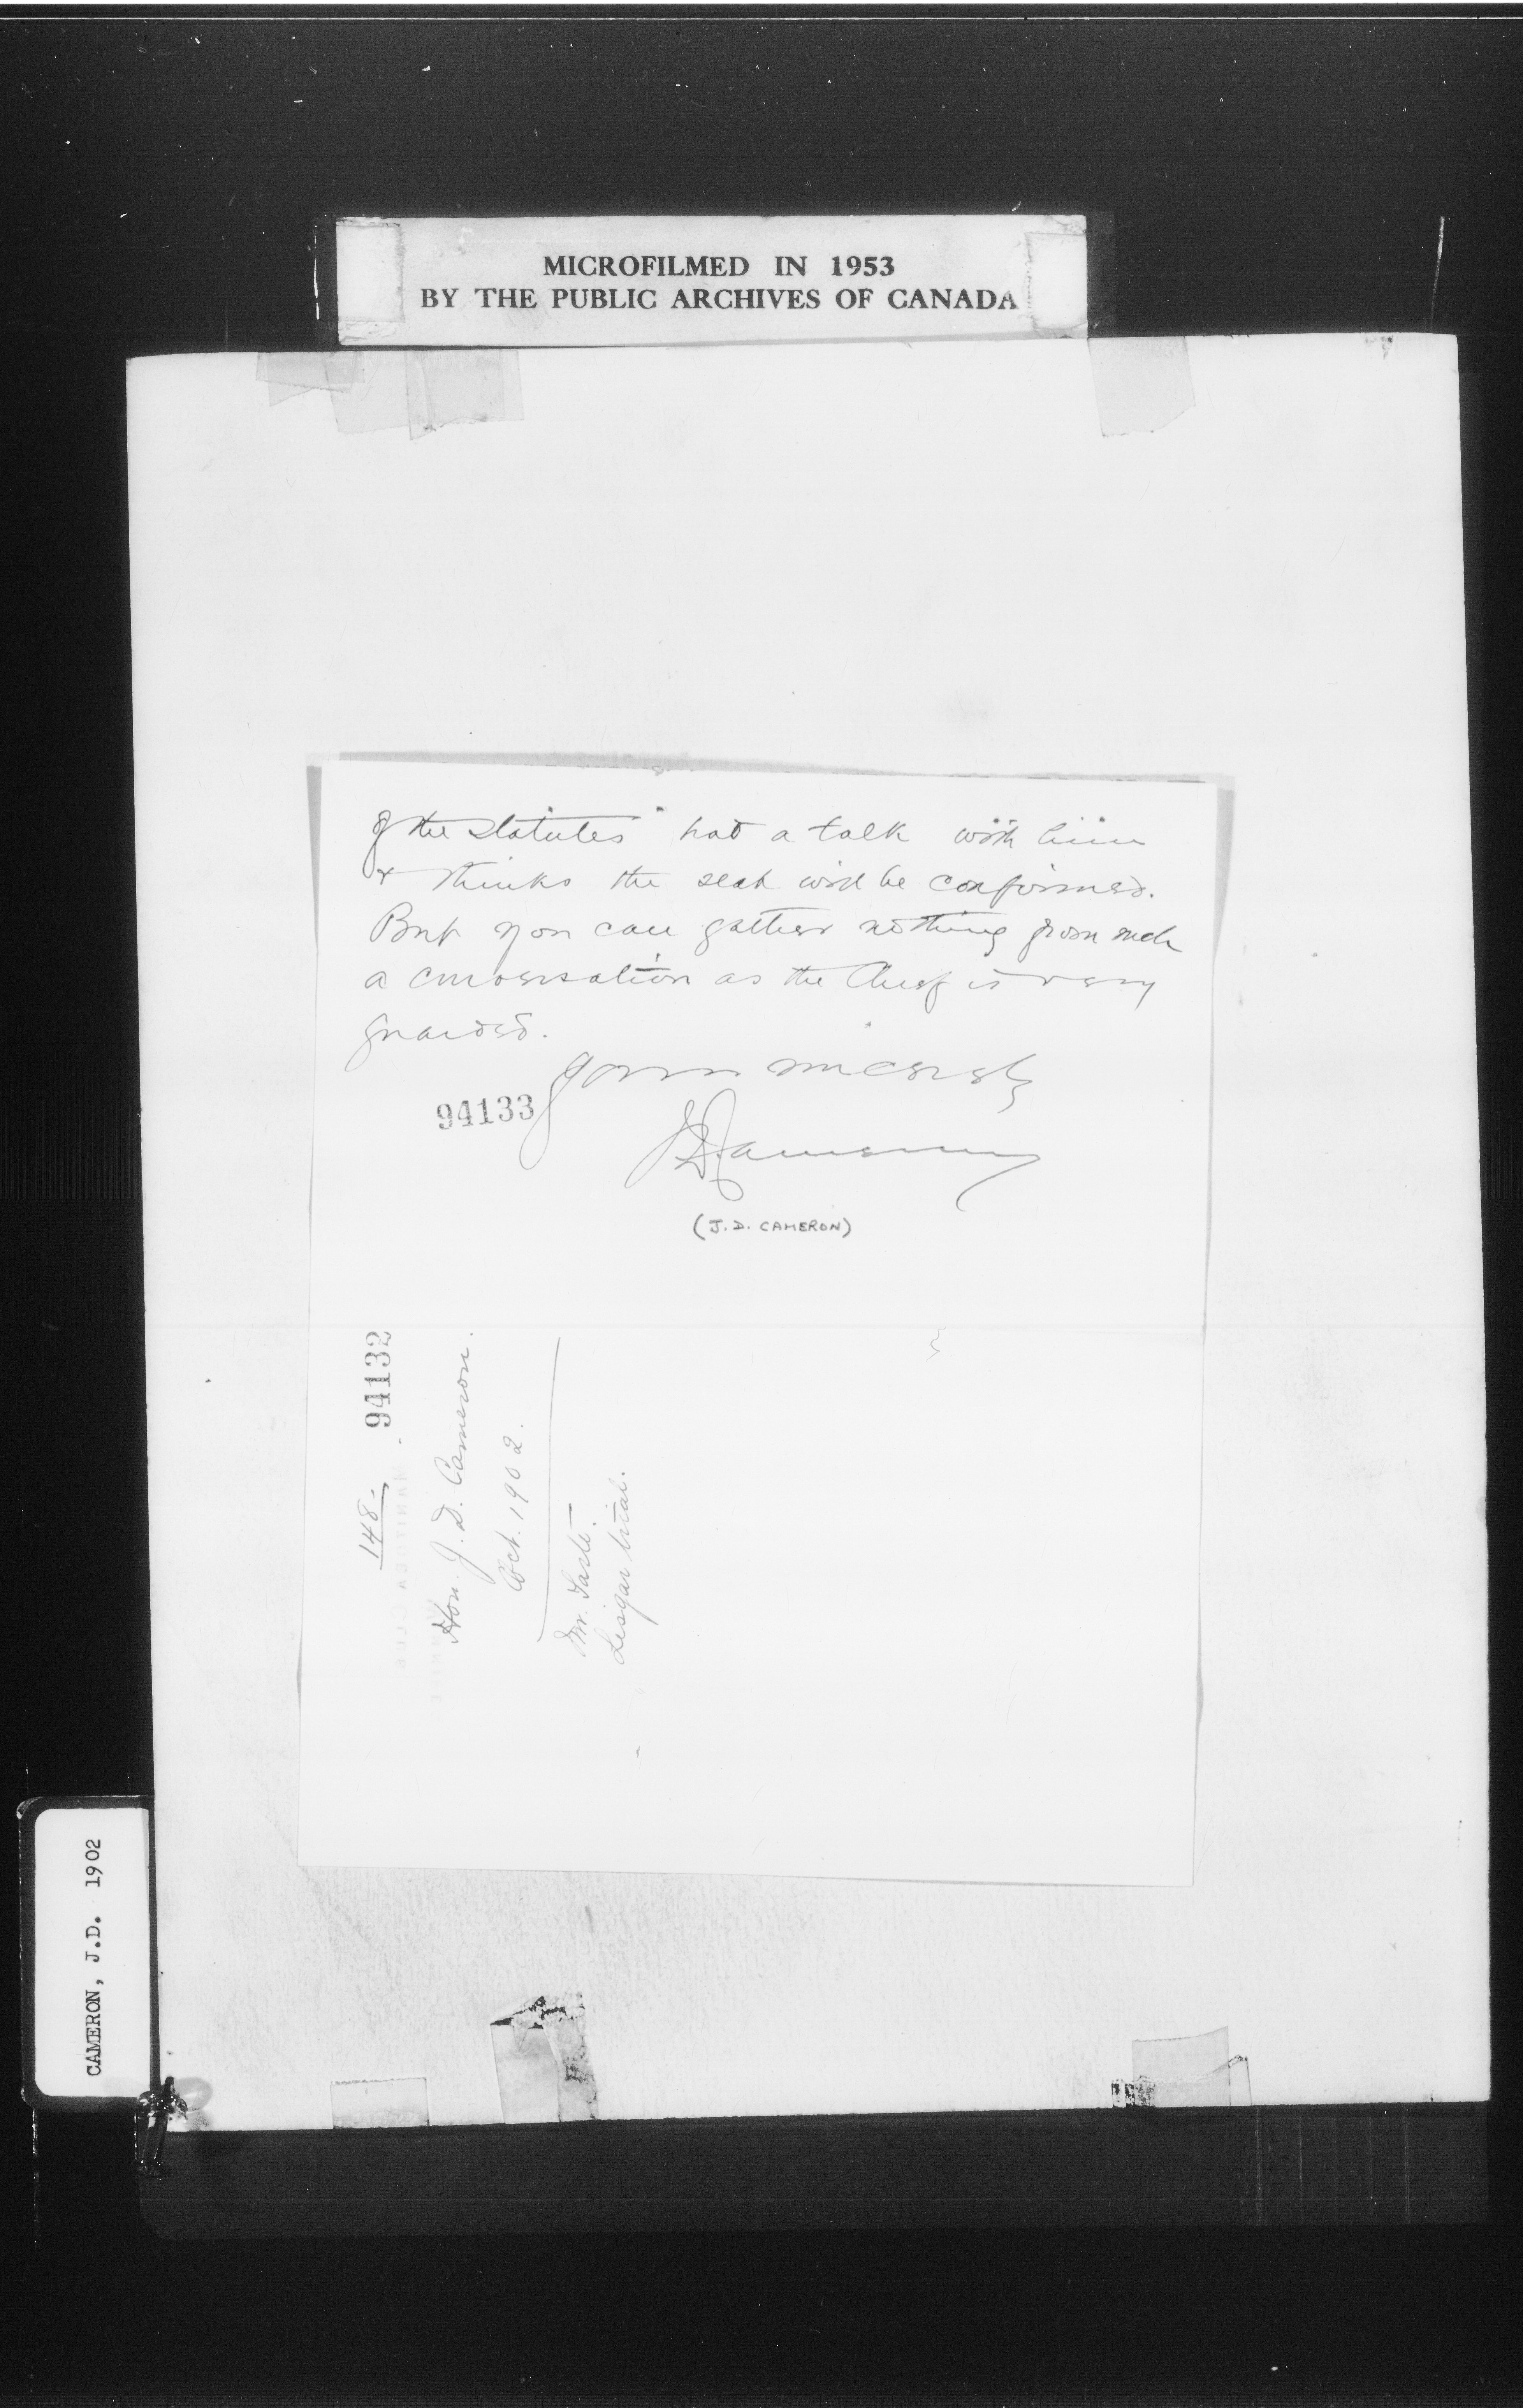 MICROFILMED IN 1953
BY THE PUBLIC ARCHIVES OF CANADA
of the statutes had a talk with him
& thinks the seat will be confirmed.
But you can gather nothing from such
a conversation as the Chief is very
guarded.
Yours sincerely
94133
JDCameron
(J.D. CAMERON)
94132
148-
Hon. J. D. Cameron.
Oct. 1902.
Mr. Tarte.
Lisgar trial.
CAMERON, J.D. 1902